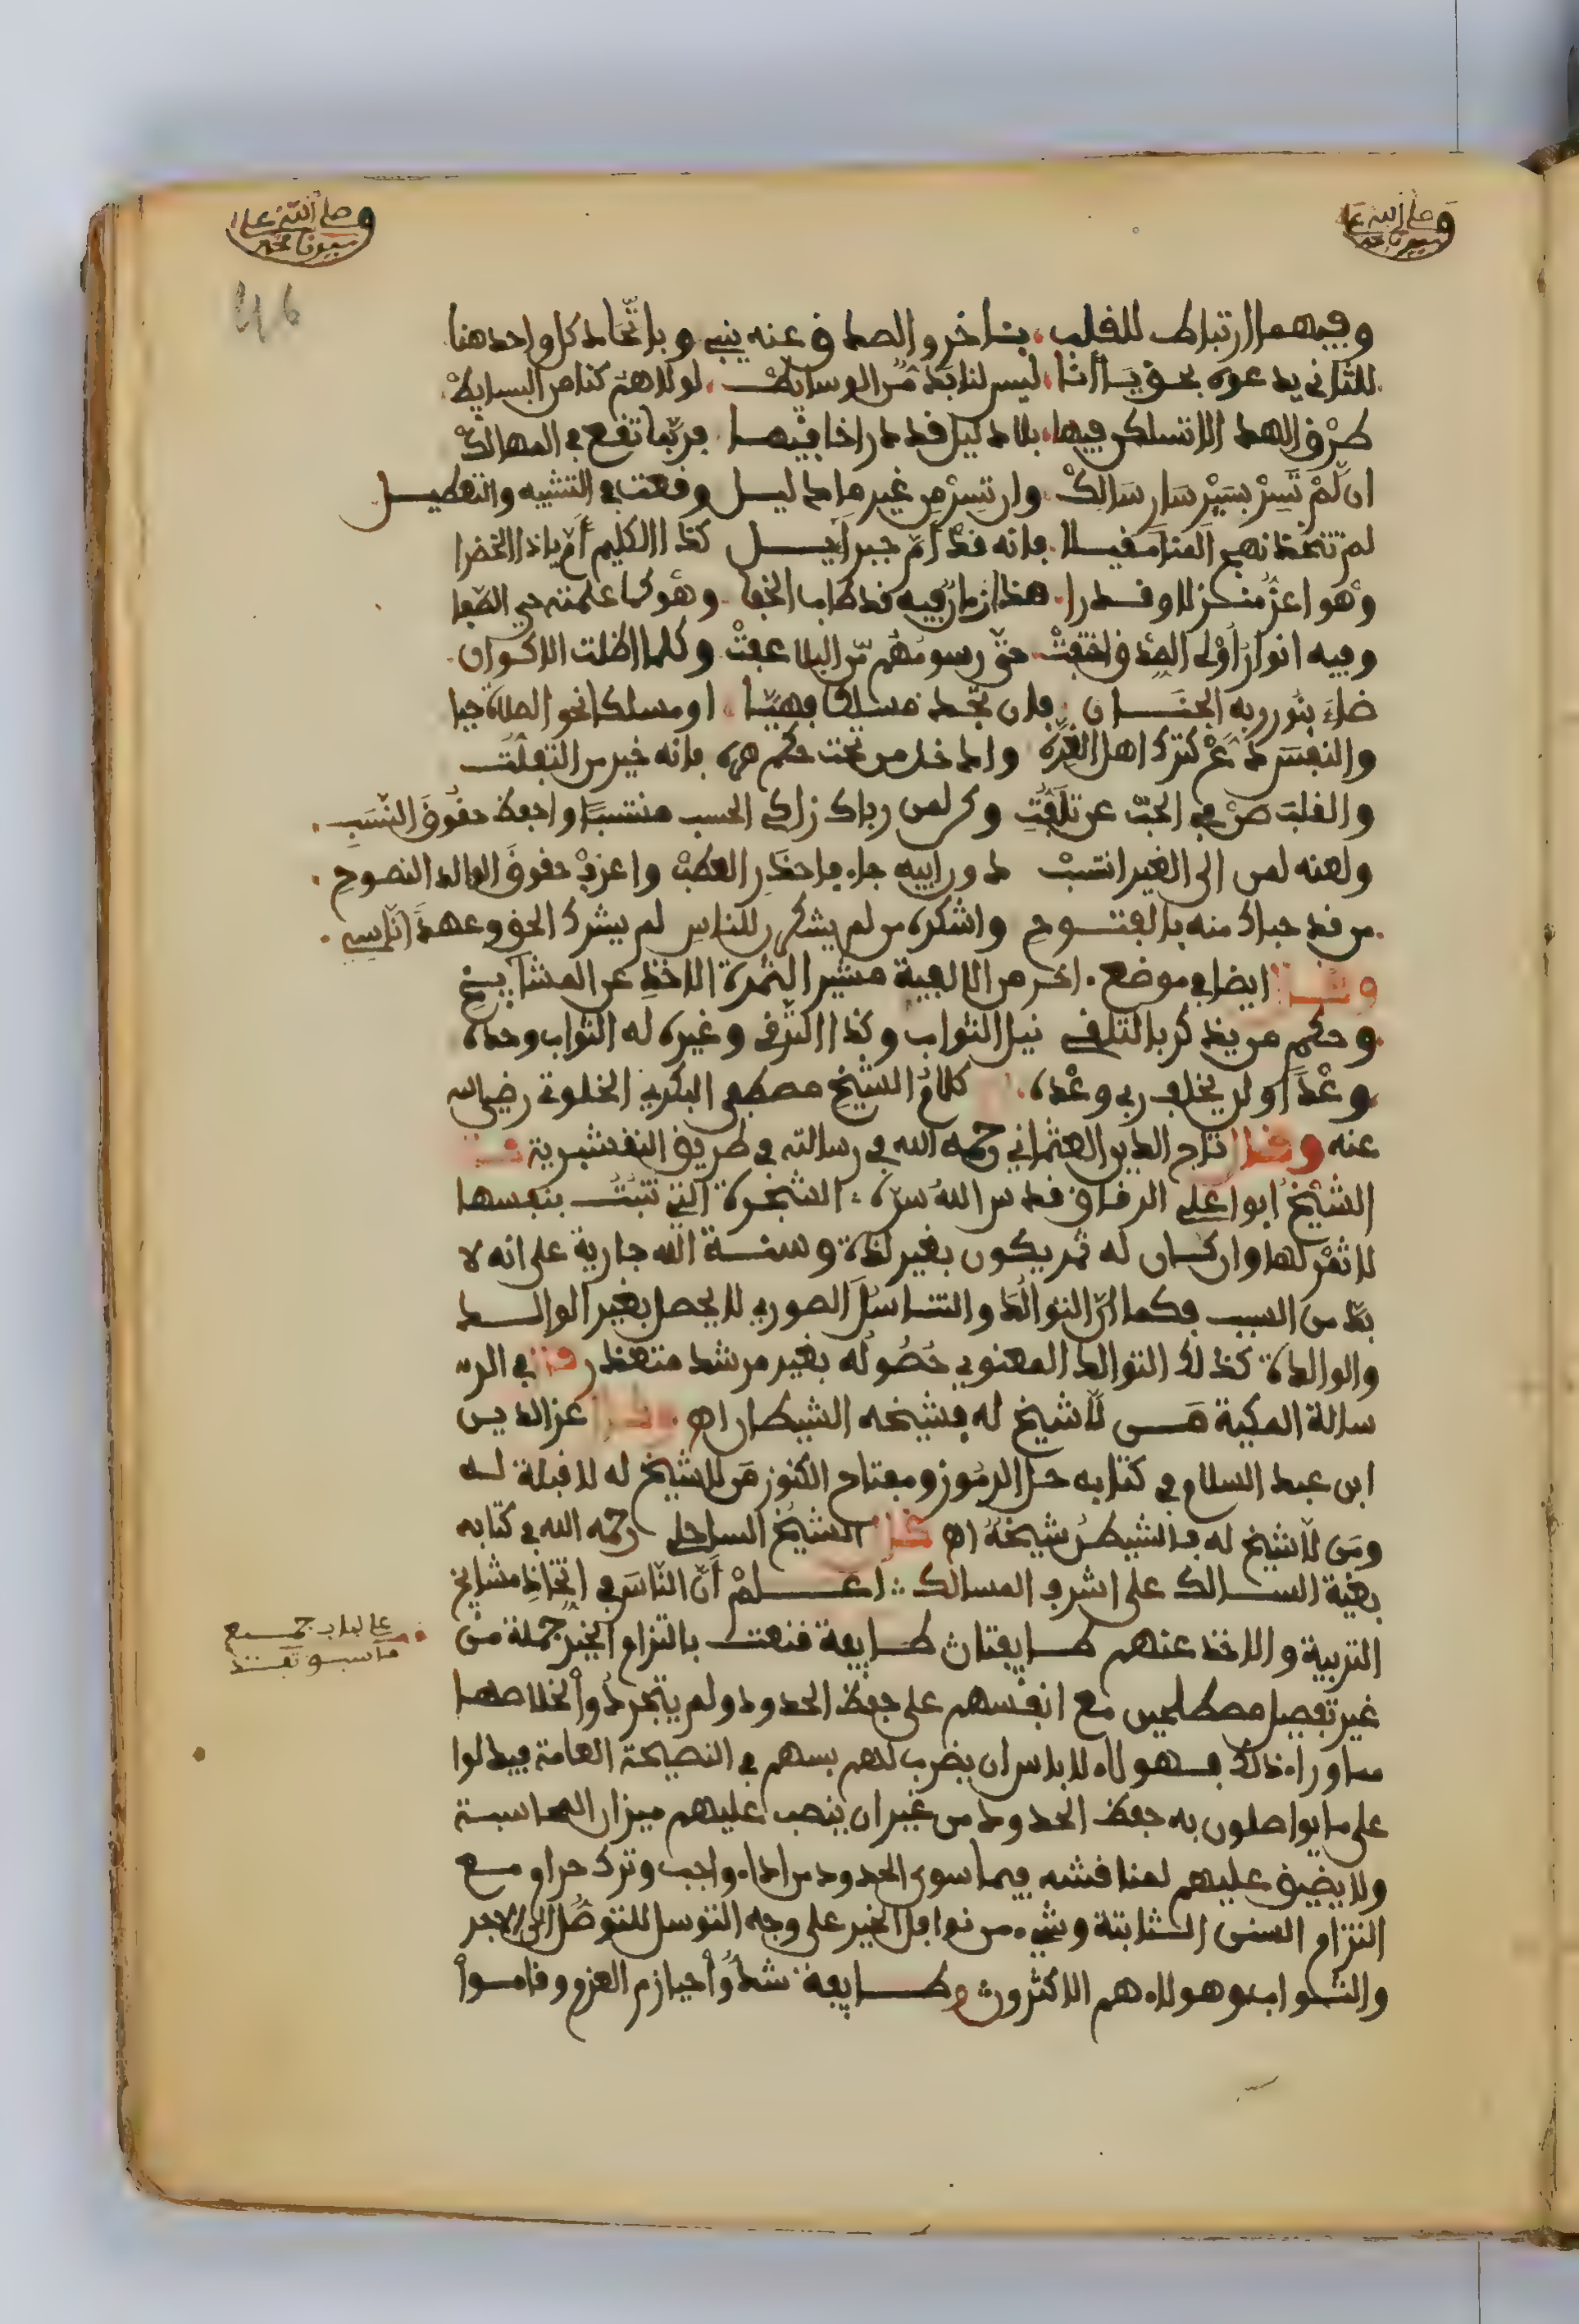 وصلى الله على
سيدنا محمد
وصلى الله على
سيدنا محمد
وفيهما ارتباط للقلب بتاخر والصدق عنه ينبي وباتحاد كل واحد هنا
للثاني يدعوه بحق يا أنا ليس لنا بد من الوسايط لولاهم كنا من البسايط
طرق الهدا لا تسلكن فيها بلا دليل قد درا خافيها فربما تقع في المهالك
ان لم تسر بسير سار سالك وان تسر من غير ما دليل وقعت في التشبيه والتعطيل
لم تتخذ نهج الهنا مقيلا فانه قد أم جبرائيل كذا الكليم أم ياذا الخضرا
وهو اعز منزلا وقدرا هذا زمان فيه قد طاب الخفا وهو كما علمته حي الصفا
وفيه انوار أولى الصدق اختفت حتى رسومهم من البلا عفت وكلما اظلت الاكوان
ضاء بنور ربه الجنان فان تجد مسلكا بهيا او مسلكا نحو الصلاة حيا
والنفس دع كترك اهل الغره وادخلن تحت حكم مره فانه خير من التفلت
والقلب صن في الحب عن تلفت وكن لمن رباك زاكي الحسب منتسبا واحفظ حقوق النسب
ولعنه لمن الى الغير انتسب دون ابيه جاء فاحذر العطب واعرف حقوق الوالد النصوح
من قد حباك منه بالفتوح واشكره من لم يشكرن للناس لم يشرك الحق وعهدا ناسي
ايضا في موضع اخر من الالفية مشيرا لثمرة الاخذ عن المشايخ
وحكم من يذكر بالتلقي نيل الثواب وكذا الترقي وغيره له الثواب وحده
وعدا ولن يخلف ربي وعده كلام الشيخ مصطفى البكري الخلوتي رضي الله
عنه وقال تاج الدين العثماني رحمه الله في رسالته في طريق النقشبرية قال
الشيخ ابوا علي الدقاق قدس الله سره الشجرة التي تنبت بنفسها
لا ثمر لها وان كان له ثمر يكون بغير لذة وسنة الله جارية على انه لا
بد من السبب فكما ان التوالد والتناسل الصوري لا يحصل بغير الوالد
والوالدة كذلك التوالد المعنوي حصوله بغير مرشد متعذر وفي الر
سالة المكية من لا شيخ له فشيخه الشيطان اه وقال عز الدين
ابن عبد السلام في كتابه حل الرموز ومفتاح الكنوز من لا شيخ له لا قبلة له
ومن لا شيخ له فالشيطن شيخه اه قال الشيخ الساحلي رحمه الله في كتابه
بغية السالك على اشرف المسالك اعلم أن الناس في اتخاذ مشايخ
التربية والاخذ عنهم طايفتان طايفة قنعت بالتزام الخير جملة من
غير تفصيل مصطلحين مع انفسهم على حفظ الحدود ولم يتجردوا لخلاصها
مما وراء ذلك فهولاء لا باس ان يضرب لهم بسهم في النصيحة العامة فيدلوا
على ما يواصلون به حفظ الحدود من غير ان ينصب عليهم ميزان المحاسبة
ولا يضيق عليهم لمناقشه فيما سوى الحدود من اداء واجب وترك حرام مع
التزام السنن الثابتة وشيء من نوافل الخير على وجه التوسل للتوصل الى الاجر
والثواب وهولاء هم الاكثرون وطايفة شدوا حيازم العزم وقاموا